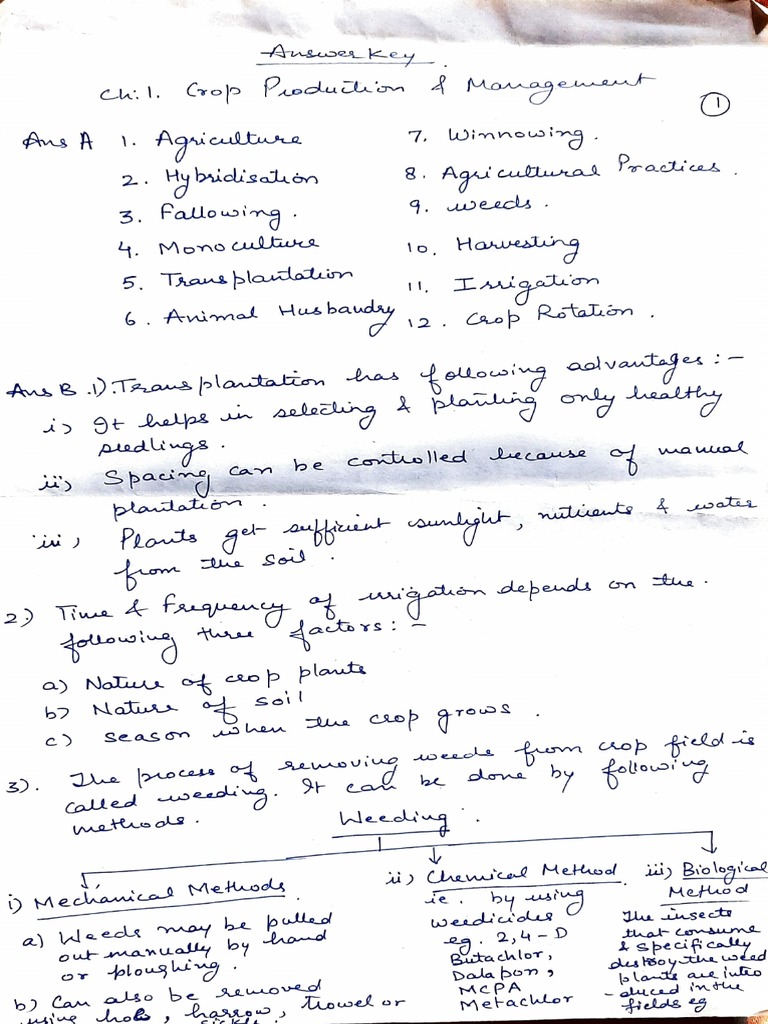 Answer Key
Ch:1. Crop Production & Management
1
Ans A 1. Agriculture
2. Hybridisation
3. Fallowing.
4. Monoculture
5. Transplantation
6. Animal Husbandry
7. Winnowing.
8. Agricultural Practices.
9. weeds.
10. Harvesting
11. Irrigation
12. Crop Rotation.
Ans B .1) Transplantation has following advantages :-
i) It helps in selecting & planting only healthy
seedlings.
ii) Spacing can be controlled because of manual
plantation.
iii) Plants get sufficient sunlight, nutrients & water
from the soil.
2) Time & frequency of irrigation depends on the.
following three factors: -
a) Nature of crop plants
b) Nature of soil
c) season when the crop grows.
3). The process of removing weeds from crop field is
called weeding. It can be done by following
methods.
Weeding.
i) Mechanical Methods.
a) Weeds may be pulled
out manually by hand
or ploughing.
b) Can also be removed
using hoe, harrow, trowel or
sickle
ii) Chemical Method
ie. by using
weedicides
eg. 2,4-D
Butachlor,
Dalapon,
MCPA
Metachlor
iii) Biological
Method
The insects
that consume
& specifically
destroy the weed
plants are intro
-duced in the
fields eg